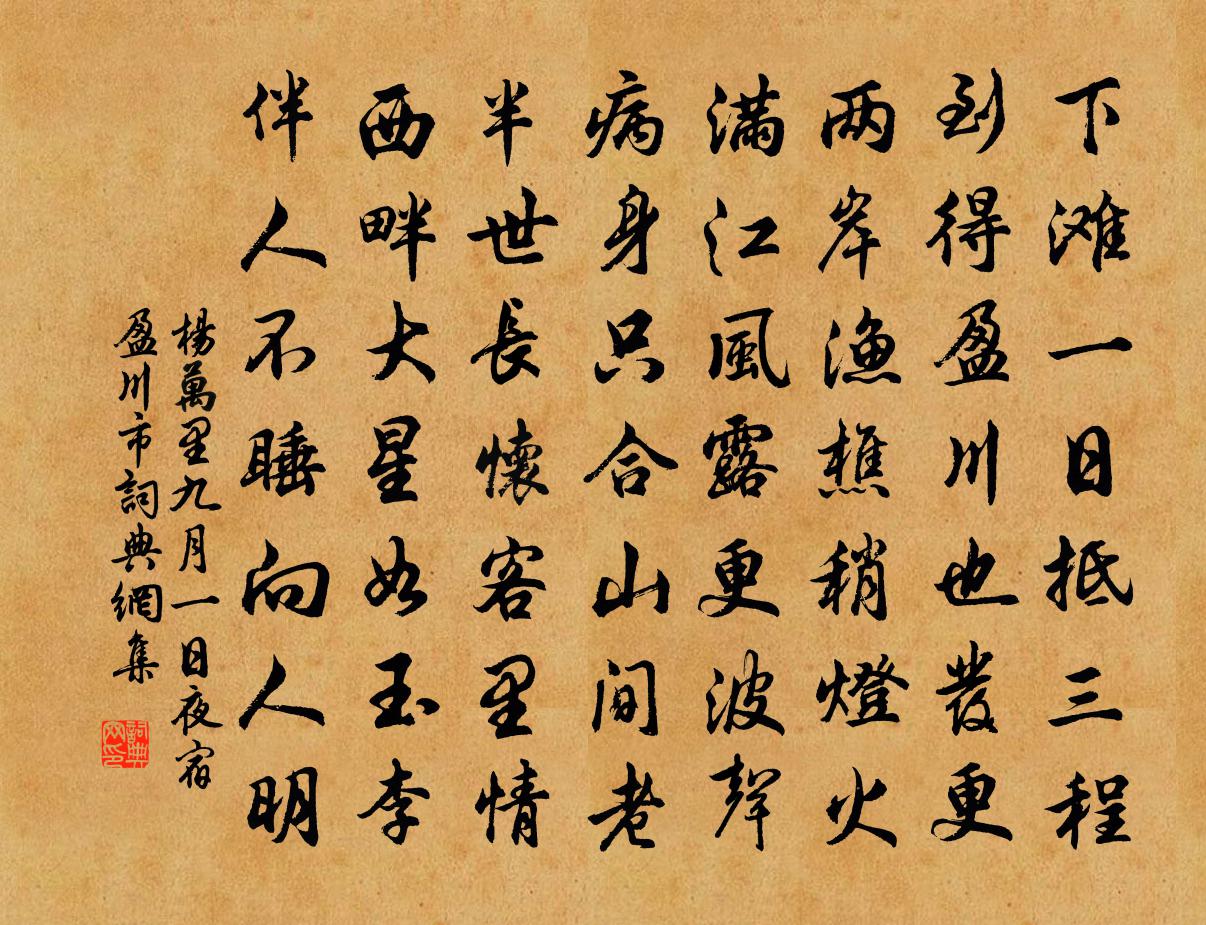 下滩一日抵三程
到得盈川也發更
两岸漁樵稍燈火
满江風露更波聲
病身只合山間老
半世長懷客里情
西畔大星如玉李
伴人不睡向人明
楊萬里九月一日夜宿
盈川市詞典網集
詞典网印